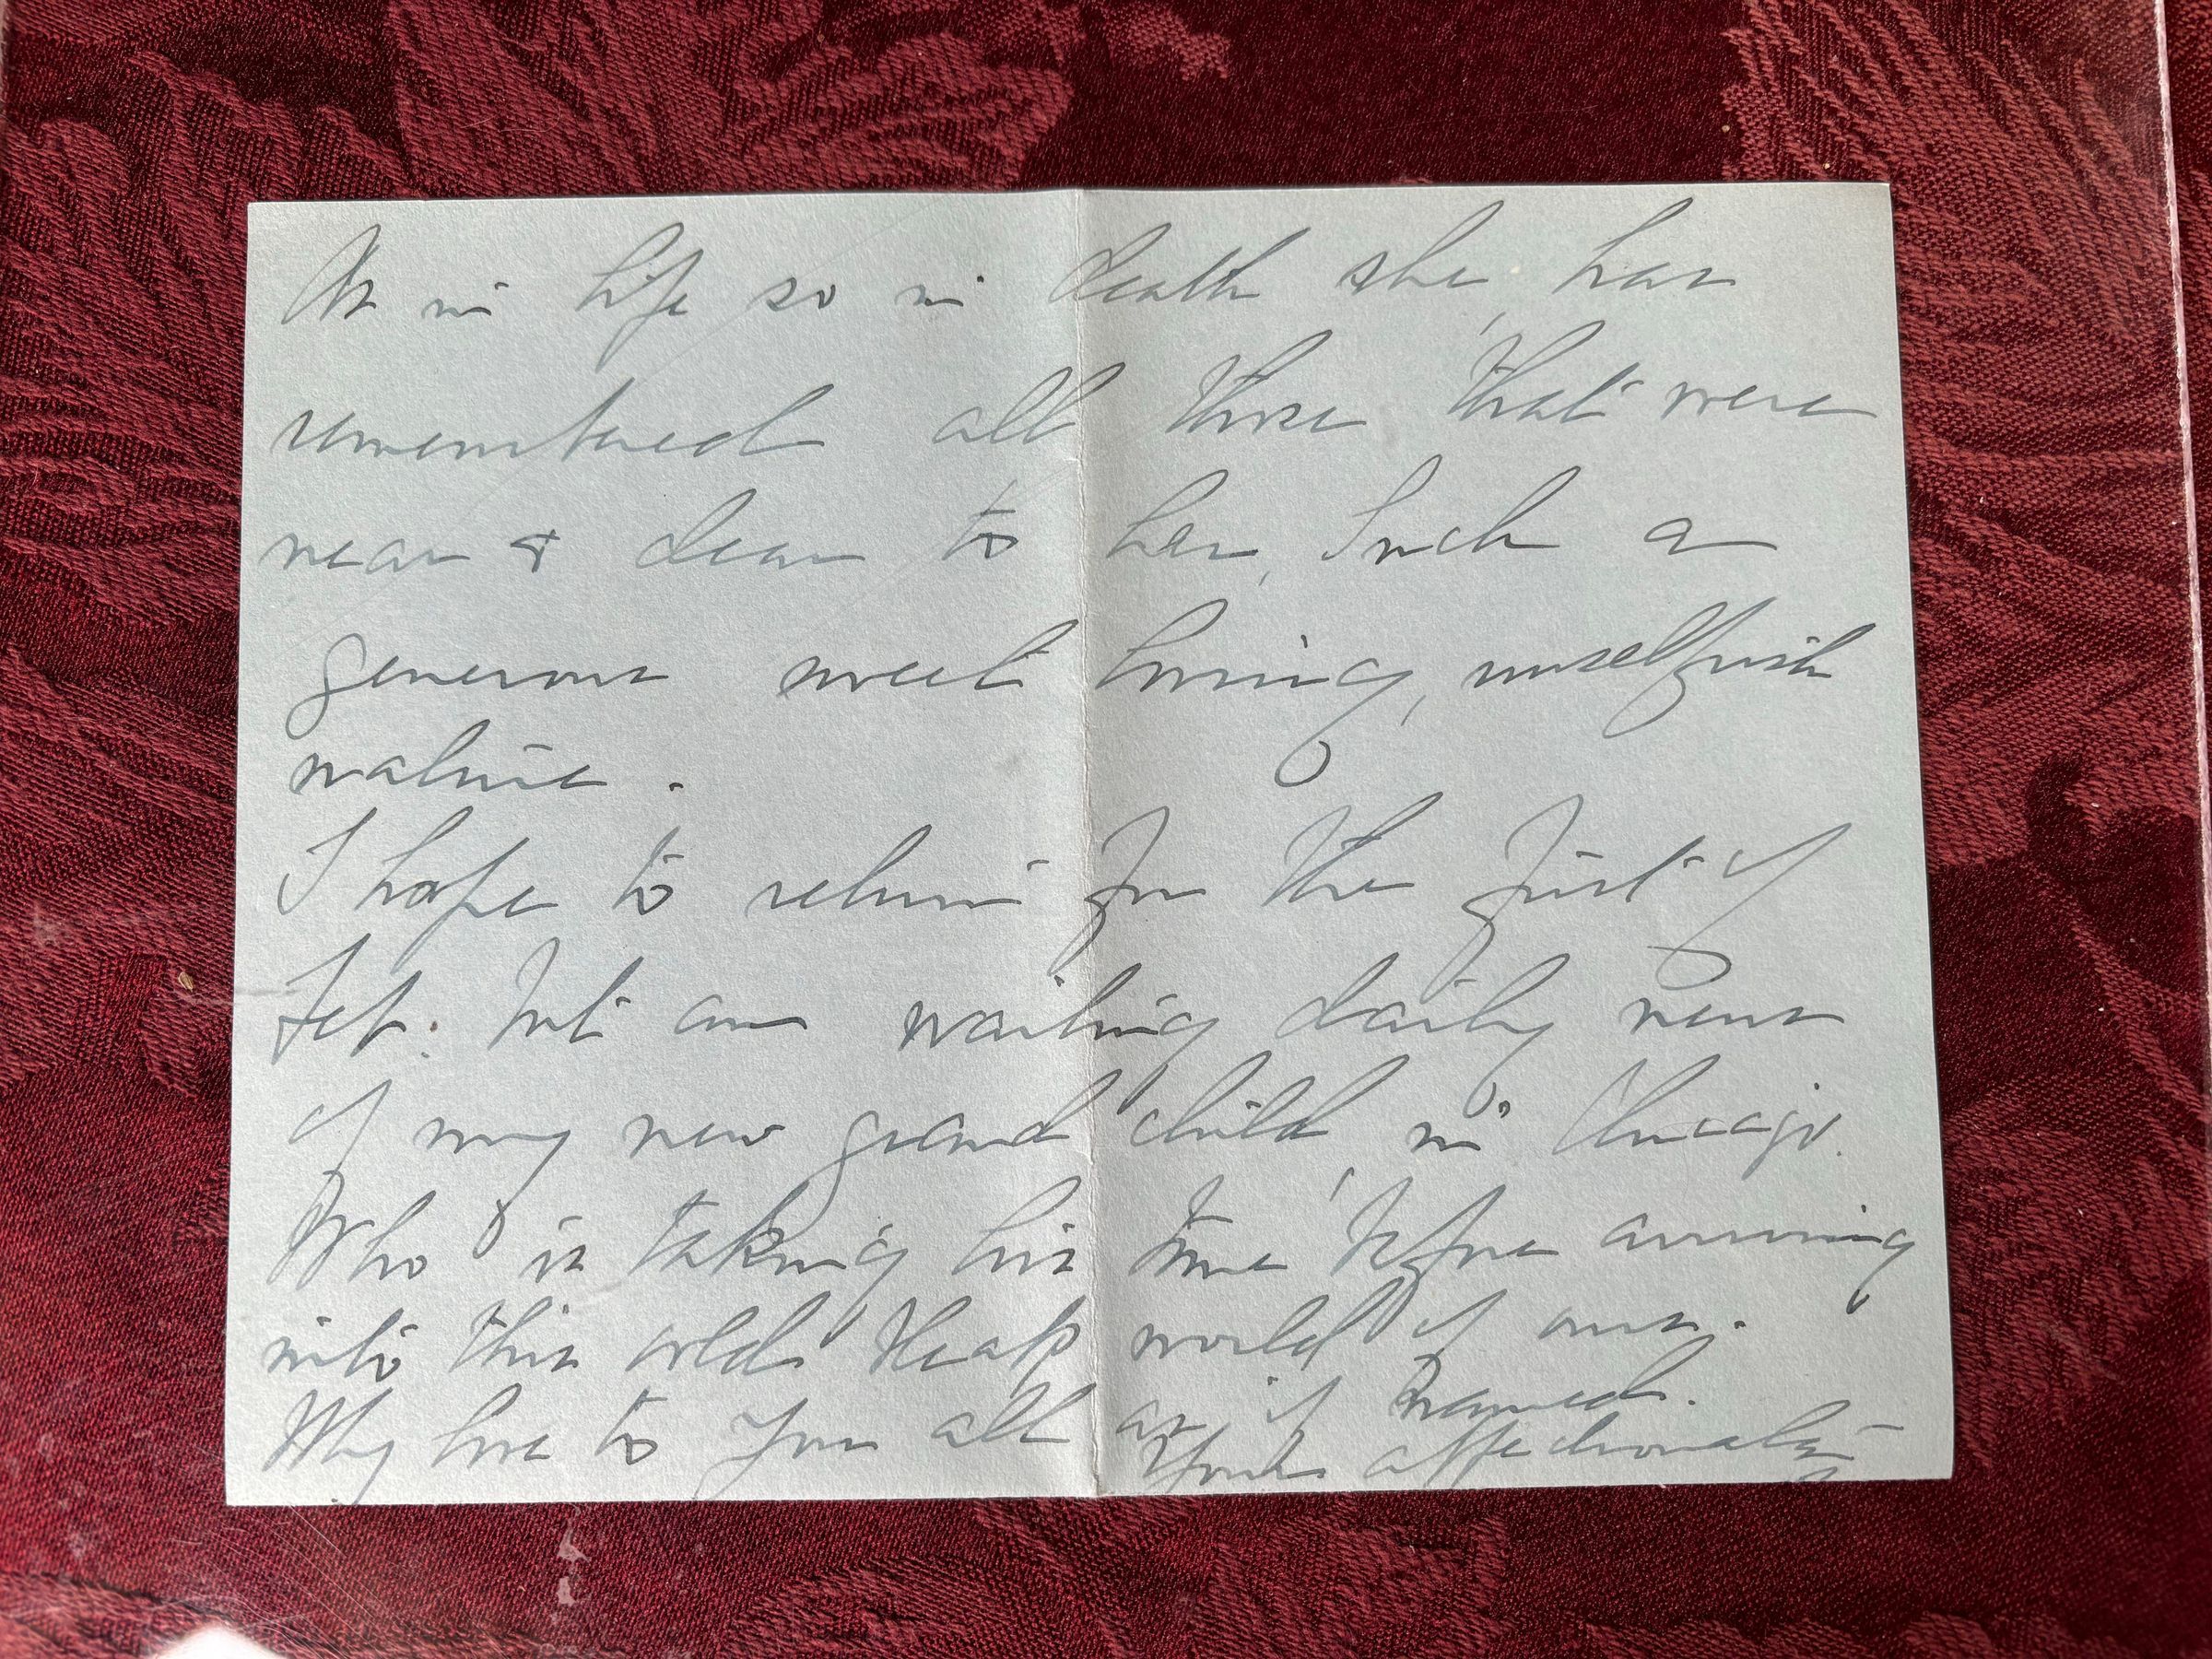 As in life so in death she, has
remembered all those that were
near & dear to her, Such a
generous sweet loving, unselfish
nature.
I hope to return for the first of
Feb. but am waiting daily news
of my new grand child, in Chicago.
Who is taking his time before arriving
into this old world of ours.
My love to you all as if named.
Yours affectionately